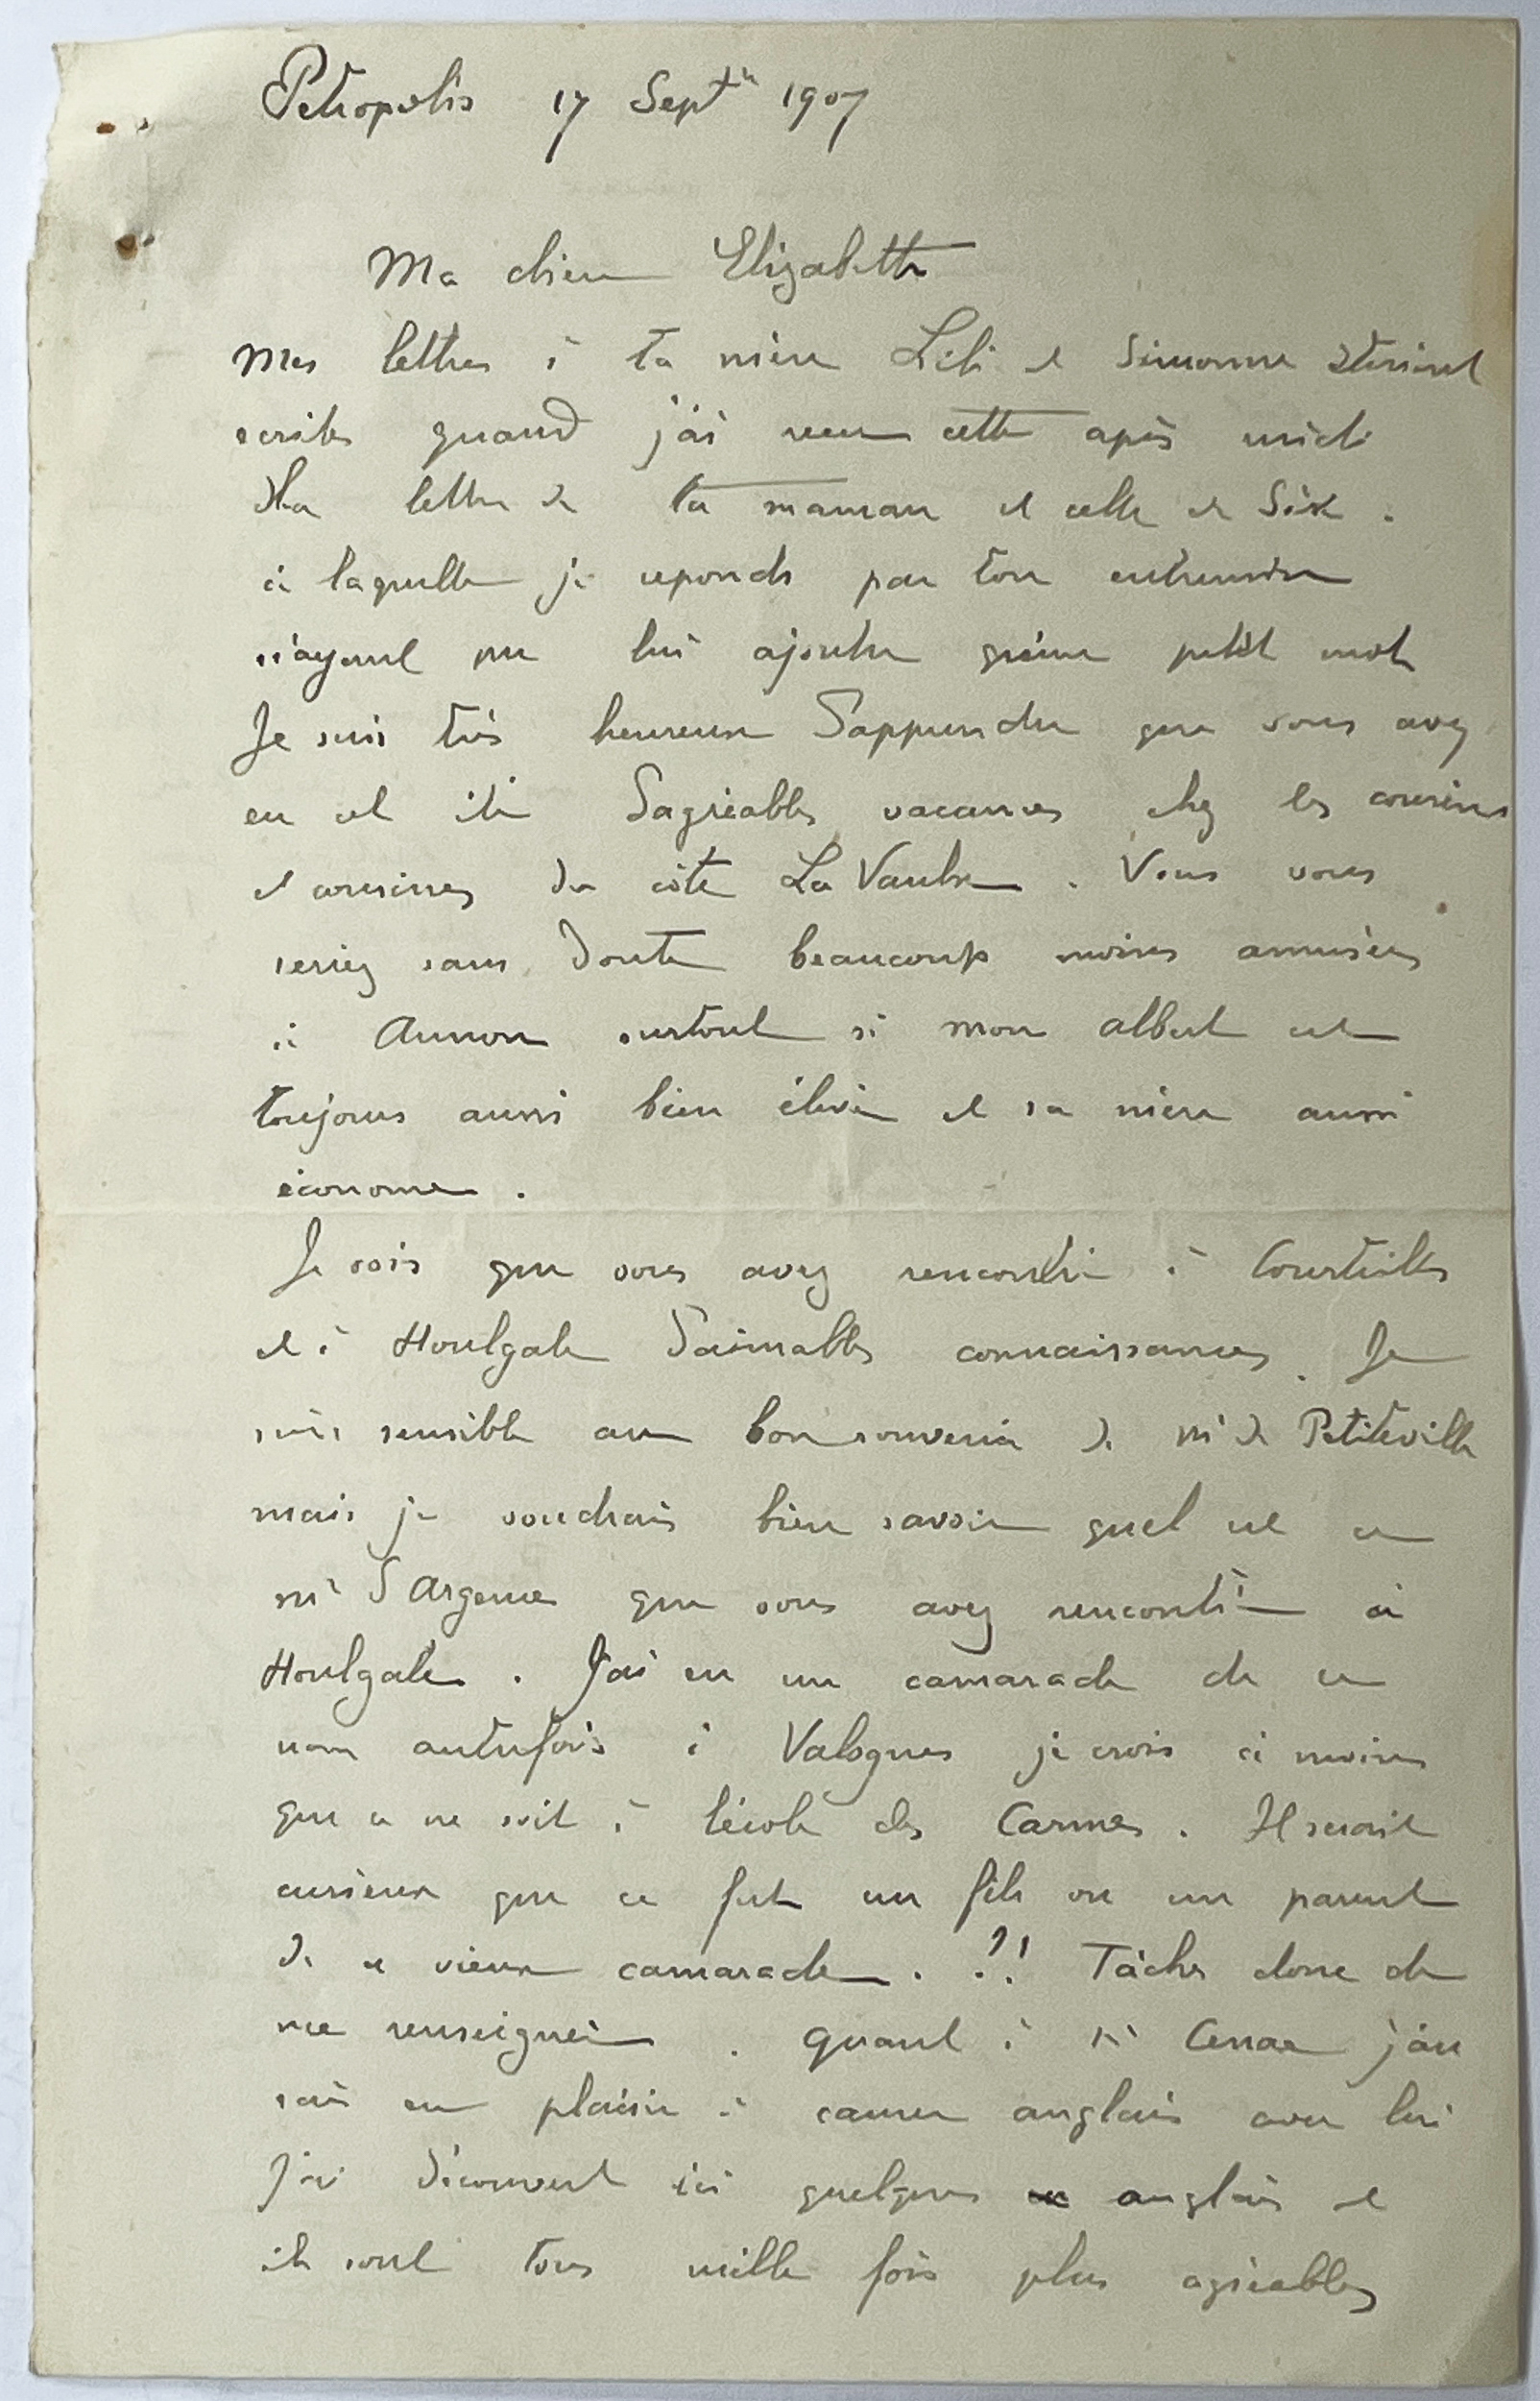 Petropolis 17 Sept<sup>re</sup> 1907
Ma chère Elizabeth
Mes lettres à ta mère Lili et Simonne étaient
ecrites quand j'ai recu cette après midi
la lettre de ta maman et celle de
à laquelle je reponds par ton entremise
n'ayant pu lui ajouter qu'un petit mot
Je suis très heureux d'apprendre que vous avez
eu cet été d'agréables vacances chez les cousins
et cousines du côté La Vaulx. Vous vous
seriez sans doute beaucoup moins amusées
à surtout si mon albert est
toujours aussi bien élevé et sa mère aussi
économe.
Je vois que vous avez rencontré à Courteilles
et à Houlgate d'aimables connaissances. Je
suis sensible au bon souvenir de Mr de Petiteville
mais je voudrais bien savoir quel est ce
mr d'Argence que vous avez rencontré à
Houlgate. J'ai eu un camarade de ce
nom autrefois à Valognes je crois à moins
que ce ne soit à l'école des Carmes. Il serait
curieux que ce fut un fils ou un parent
de ce vieux camarade. ?! Tâches donc de
me renseigner. Quant à Mr j'au
rais eu plaisir à causer anglais avec lui
J'ai découvert ici quelques anglais et
ils sont tous mille fois plus agréables